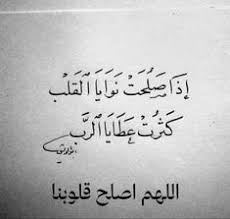 إِذَا صَلُحَتْ نَوَايَا القَلْب
كَثُرَتْ عَطَايَا الرَّب
اللهم اصلح قلوبنا